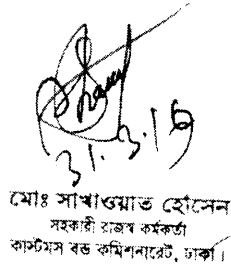 ৩১.৩.১৬
মোঃ সাখাওয়াত হোসেন
সহকারী রাজস্ব কর্মকর্তা
কাস্টমস বন্ড কমিশনারেট, ঢাকা।